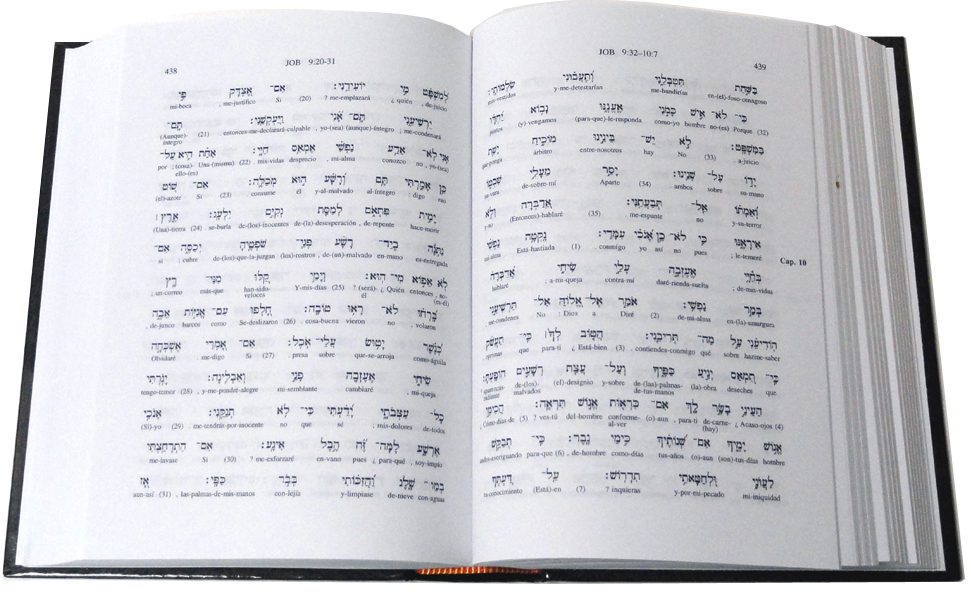 438
JOB 9:20-31
לְמִשְׁפָּט מִי יוֹעִידֵנִי׃ אִם־ אֶצְדָּק פִּי
mi-boca , me-justifico Si (20) ? me-emplazará ¿ quién , de-juicio
יַרְשִׁיעֵנִי תָּם־ אָנִי וַיַּעְקְשֵׁנִי׃ תָּם־
(Aunque)- (21) . entonces-me-declarará-culpable , yo-(sea) (aunque)-íntegro ; me-condenará
íntegro
אָנִי לֹא־ אֵדַע נַפְשִׁי אֶמְאַס חַיָּי׃ אַחַת הִיא עַל־
por ; (cosa)- Una-(misma) (22) . mis-vidas desprecio , mi-alma conozco no , yo-(sea)
ello-(es)
כֵּן אָמַרְתִּי תָּם וְרָשָׁע הוּא מְכַלֶּה׃ אִם־ שׁוֹט
(el)-azote Si (23) . consume él y-al-malvado al-íntegro ; digo eso
יָמִית פִּתְאֹם לְמַסַּת נְקִיִּם יִלְעָג׃ אֶרֶץ
(Una)-tierra (24) . se-burla de-(los)-inocentes de-(la)-desesperación , de-repente hace-morir
נִתְּנָה בְיַד־ רָשָׁע פְּנֵי־ שֹׁפְטֶיהָ יְכַסֶּה אִם־
si ; cubre de-(los)-que-la-juzgan (los)-rostros , de-(un)-malvado en-mano es-entregada
לֹא אֵפוֹא מִי־ הוּא׃ וְיָמַי קַלּוּ מִנִּי־ רָץ
; un-correo más-que han-sido- Y-mis-días (25) ? (será)- ¿ Quién entonces , no-
veloces él (es-él)
בָּרְחוּ לֹא־ רָאוּ טוֹבָה׃ חָלְפוּ עִם־ אֳנִיּוֹת אֵבֶה
, de-junco barcos como Se-deslizaron (26) . cosa-buena vieron no , volaron
כְּנֶשֶׁר יָטוּשׂ עֲלֵי־ אֹכֶל׃ אִם־ אָמְרִי אֶשְׁכְּחָה
Olvidaré , me-digo Si (27) . presa sobre que-se-arroja como-águila
שִׂיחִי אֶעֶזְבָה פָנַי וְאַבְלִיגָה׃ יָגֹרְתִּי
tengo-temor (28) , y-me-pondré-alegre mi-semblante cambiaré , mi-queja
כָל־ עַצְּבֹתָי יָדַעְתִּי כִּי־ לֹא תְנַקֵּנִי׃ אָנֹכִי
(Si)-yo (29) . me-tendrás-por-inocente no que sé ; mis-dolores de-todos
אֶרְשָׁע לָמָּה־ זֶּה הֶבֶל אִיגָע׃ אִם־ הִתְרָחַצְתִּי
me-lavase Si (30) ? me-esforzaré en-vano pues ¿ para-qué , soy-impío
בְמוֹ־ שָׁלֶג וַהֲזִכּוֹתִי בְּבֹר כַּפָּי׃ אָז
aun-así (31) , las-palmas-de-mis-manos con-lejía y-limpiase de-nieve con-aguas
JOB 9:32–10:7
439
בַּשַּׁחַת תִּטְבְּלֵנִי וְתִעֲבוּנִי שַׂלְמוֹתָי׃
mis-vestidos y-me-detestarían me-hundirías en-(el)-foso-cenagoso
כִּי־ לֹא־ אִישׁ כָּמוֹנִי אֶעֱנֶנּוּ נָבוֹא יַחְדָּו
juntos (y)-vengamos (para-que)-le-responda como-yo hombre no-(es) Porque (32)
בַּמִּשְׁפָּט׃ לֹא יֵשׁ־ בֵּינֵינוּ מוֹכִיחַ יָשֵׁת
que-ponga árbitro entre-nosotros hay No (33) . a-juicio
יָדוֹ עַל־ שְׁנֵינוּ׃ יָסֵר מֵעָלַי שִׁבְטוֹ
su-vara de-sobre-mí Aparte (34) . ambos sobre su-mano
וְאֵמָתוֹ אַל־ תְּבַעֲתַנִּי׃ אֲדַבְּרָה וְלֹא
y-no (Entonces)-hablaré (35) . me-espante no y-su-terror
אִירָאֶנּוּ כִּי לֹא־ כֵן אָנֹכִי עִמָּדִי׃ נָקְטָה נַפְשִׁי
mi-alma Está-hastiada (1) . conmigo yo así no pues ; le-temeré
Cap. 10
בְּחַיָּי אֶעֶזְבָה עָלַי שִׂיחִי אֲדַבְּרָה
hablaré ; a-mi-queja contra-mí daré-rienda-suelta ; de-mis-vidas
בְּמַר נַפְשִׁי׃ אֹמַר אֶל־ אֱלוֹהַּ אַל־ תַּרְשִׁיעֵנִי
me-condenes No : Dios a Diré (2) . de-mi-alma en-(la)-amargura
הוֹדִיעֵנִי עַל מַה־ תְּרִיבֵנִי׃ הֲטוֹב לְךָ כִּי־ תַעֲשֹׁק
oprimas que para-ti ¿ Está-bien (3) . contiendes-conmigo qué sobre hazme-saber
כִּי־ תִמְאַס יְגִיעַ כַּפֶּיךָ וְעַל־ עֲצַת רְשָׁעִים הוֹפָעְתָּ׃
de-(los)- (el)-designio y-sobre de-(las)-palmas- (la)-obra deseches que
malvados de-tus-manos
הַעֵינֵי בָשָׂר לָךְ אִם־ כִּרְאוֹת אֱנוֹשׁ תִּרְאֶה׃ הֲכִימֵי
¿ Como-días-de (5) ? ves-tú del-hombre conforme- (o)-aun , para-ti de-carne- ¿ Acaso-ojos (4)
al-ver (hay)
אֱנוֹשׁ יָמֶיךָ אִם־ שְׁנוֹתֶיךָ כִּימֵי גָבֶר׃ כִּי־ תְבַקֵּשׁ
para-que (6) , de-hombre como-días tus-años (o)-aun (son)-tus-días hombre
לַעֲוֺנִי וּלְחַטָּאתִי תִדְרוֹשׁ׃ עַל־ דַּעְתְּךָ
tu-conocimiento (Está)-en (7) ? inquieras y-por-mi-pecado mi-iniquidad